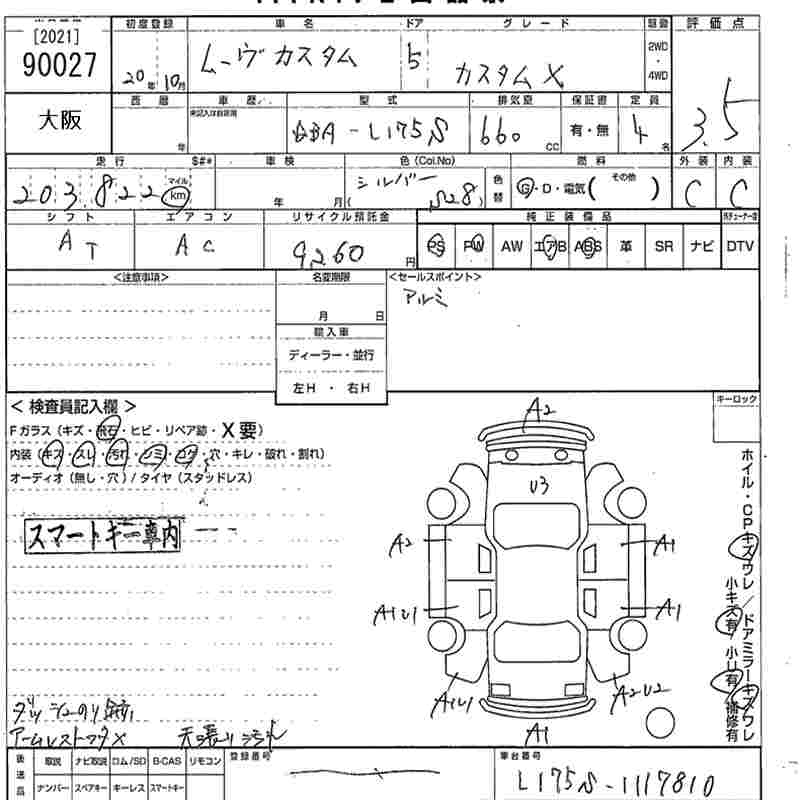 [2021]
90027
大阪
初度登録 車名 ドア グレード 駆動 評価点
20年 10月 ムーヴ カスタム 5 カスタム X 2WD ・ 4WD 3.5
西暦 車歴 型式 排気量 保証書 定員
年 未記入は自家用 DBA-L175S 660 CC 有・無 4名
走行 S#* 車検 色(Col.No) 燃料 外装 内装
203822 マイル km 年 月 シルバー (S28) 色替 G・D・電気( その他 ) C C
シフト エアコン リサイクル預託金 純正装備品
AT AC 9260円 PS PW AW エアB ABS 革 SR ナビ DTV
<注意事項> 名変期限 <セールスポイント>
アルミ
月 日
輸入車
ディーラー・並行
左H ・ 右H
< 検査員記入欄 > キーロック
Fガラス (キズ・飛石・ヒビ・リペア跡・X要)
内装 (キズ・スレ・汚れ・シミ・コゲ・穴・キレ・破れ・割れ)
オーディオ (無し・穴) / タイヤ (スタッドレス)
スマートキー車内
A2
U3
A2 A1
A1U1 A1
A1U1 A2U2
A1
ホイル・CPキズワレ/ドアミラーキズワレ
小キズ有/小U有/補修有
ダッシュのり跡
アームレストフタX 天張り汚れ
後送品 取説 ナビ取説 ロム/SD B-CAS リモコン 登録番号 車台番号
ナンバー スペアキー キーレス スマートキー L175S-1117810